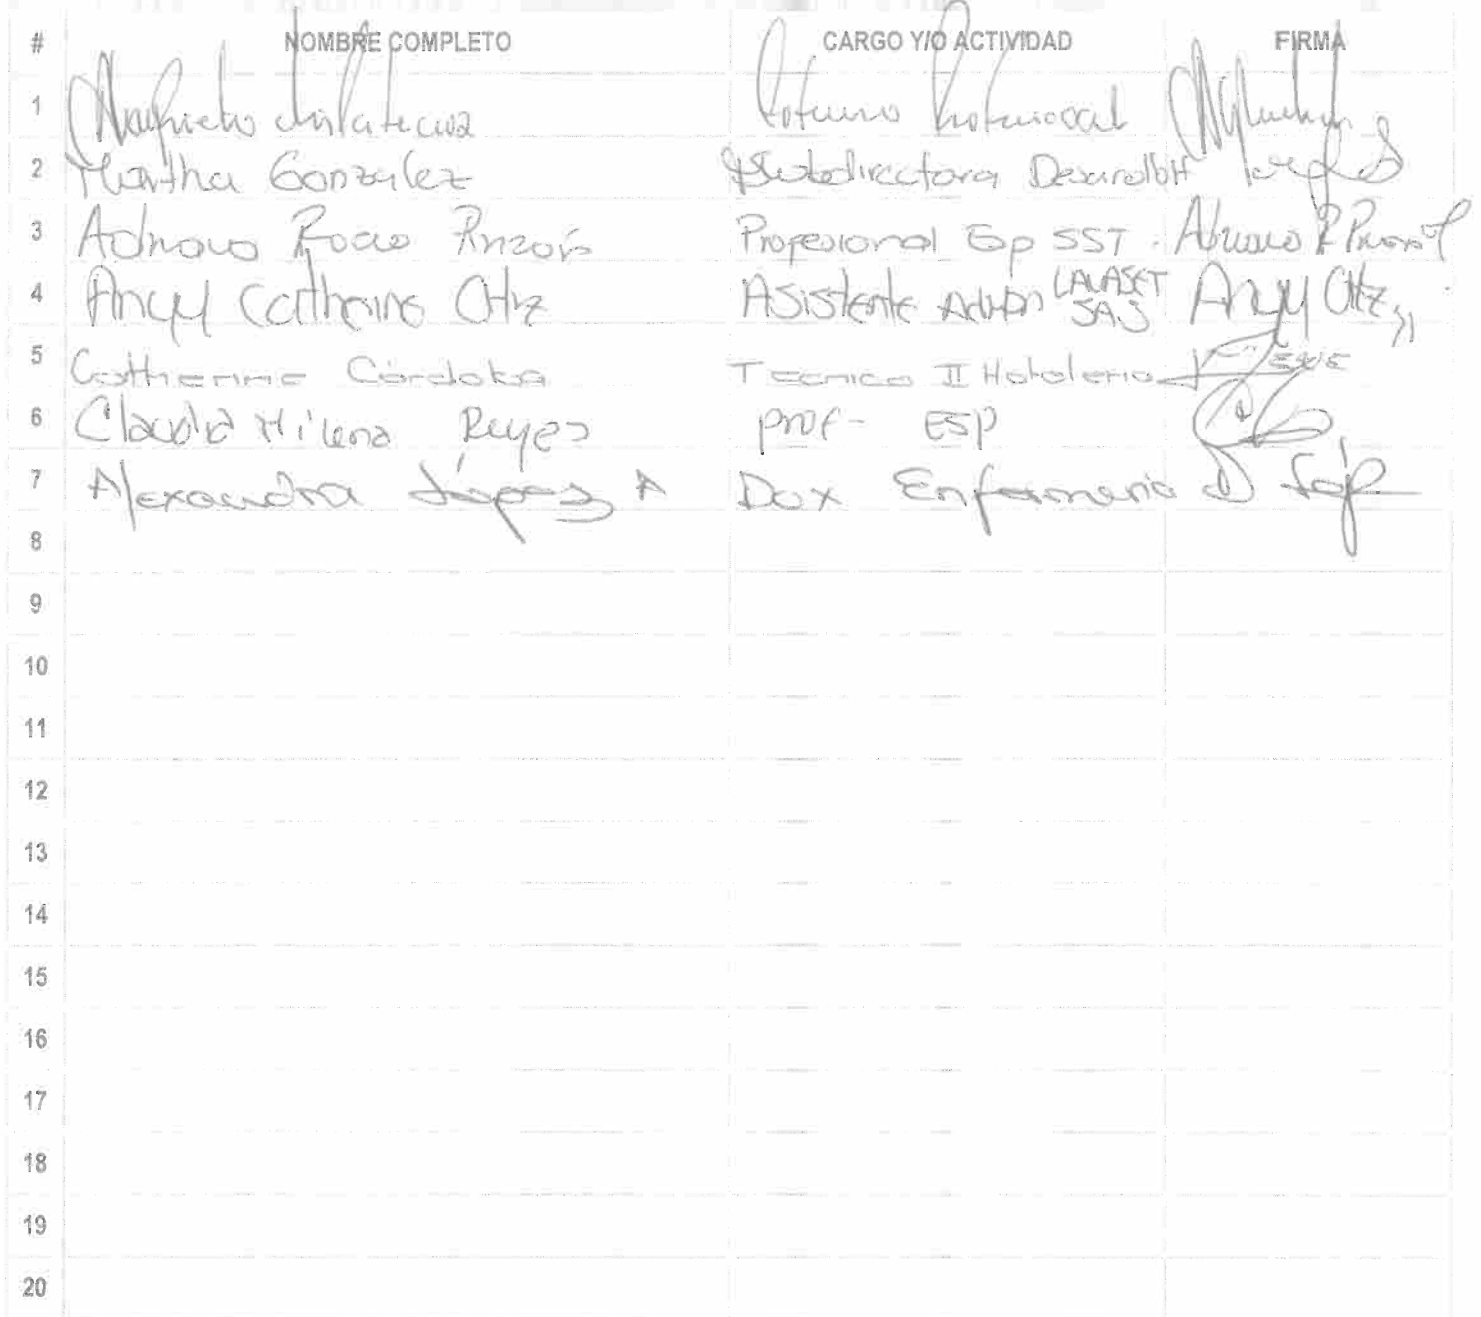 # NOMBRE COMPLETO CARGO Y/O ACTIVIDAD FIRMA
1
2 Martha Gonzalez Subdirectora Desarrollo H
3 Adriana Rocio Pinzón Profesional Esp SST.
4 Angy Catherine Ortiz Asistente Admon LAVASET SAS Angy Ortiz
5 Catherine Córdoba Tecnico II Hoteleria
6 Claudia Milena Reyes prof- ESP
7 Alexandra López A Dox Enfermeria
8
9
10
11
12
13
14
15
16
17
18
19
20